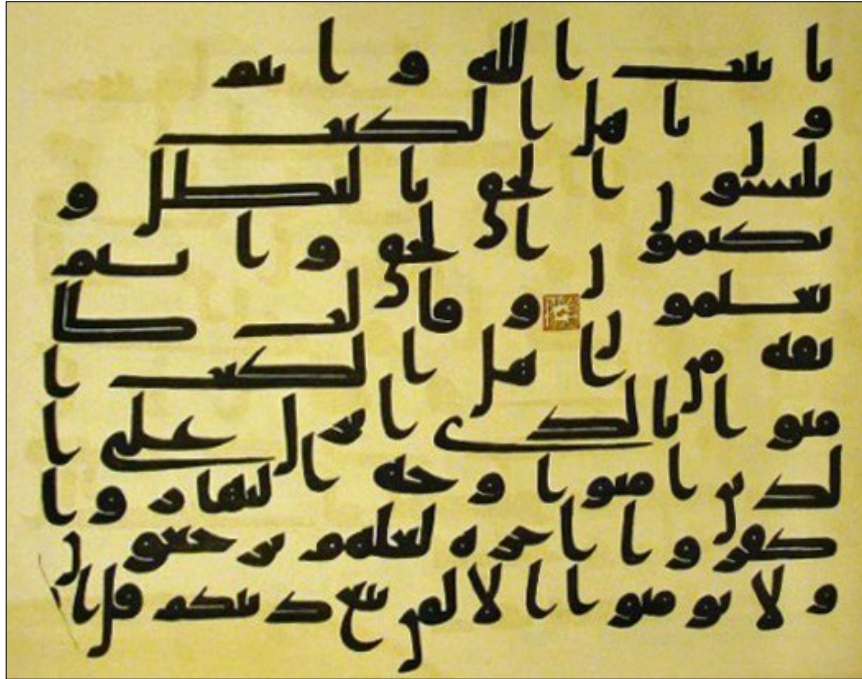 بايت الله وانتم
ون ياهل الكتب
تلبسون الحق بالبطل و
تكتمون الحق وانتم
تعلمون وقالت طا
يفه من اهل الكتب ا
منوا بالذي انزل على ا
لذين امنوا وجه النهار وا
كفروا اخره لعلهم يرجعون
ولا تومنوا الا لمن تبع دينكم قل ان